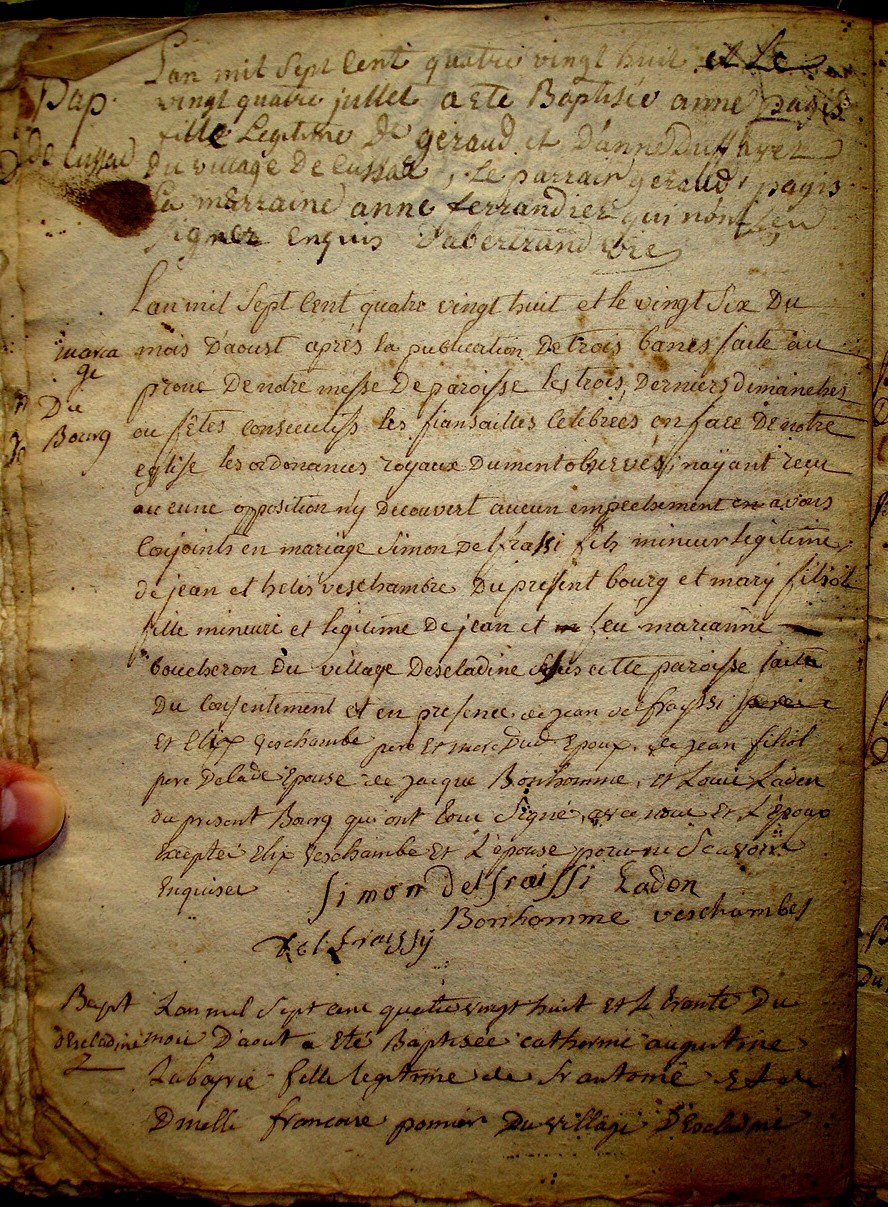 Bap.
De Cussac
Lan mil Sept Cent quatre vingt huit et Le
vingt quatre jullet a ete Baptisée anne pagis
fille Legitime De geraud et D'anne Duffayet
Du village De Cussac, Le parrain geraud pagis
La marraine anne ferrandier qui n'ont sçu
signer enquis Jabertrand vre
maria
ge
Du
Bourg
Lan mil Sept Cent quatre vingt huit et le vingt Six Du
mois D'aoust aprés la publication De trois bancs faite au
prone De notre messe De paroisse les trois Derniers dimanches
ou fêtes consecutifs les fiansailles Celebrées en face De notre
eglise les ordonances royaux Dument observés, n'ayant recu
aucune opposition n'y Decouvert aucun empechement avons
Conjoints en mariage Simon Delfraissi fils mineur legitime
de jean et helis veschambre Du present bourg et mary filiol
fille mineure et legitime De jean et feu marianne
boucheron Du village Descladine Sus cette paroisse faite
Du Consentement et en presence de jean delfraissi
et Elix veschambe pere et mere Dud Epoux, de jean filiol
pere Delade Epouse de jacque Bonhomme, et Louis Laden
du present Bourg qui ont tous Signé, avec nous et L'époux
excepteé Elix veschambe et L'epouse pour ne Scavoir
Enquises
Simon delfraissi Ladon
Bonhomme veschambes
Delfraissy
Bapt
d'Escladine
Lan mil Sept cent quatre vingt huit et le trante Du
mois D'aout a eté Baptisée catherine augustine
Labayrie fille legitime de Sr antoine et de
Dmelle francoise pomier Du village D'Escladine